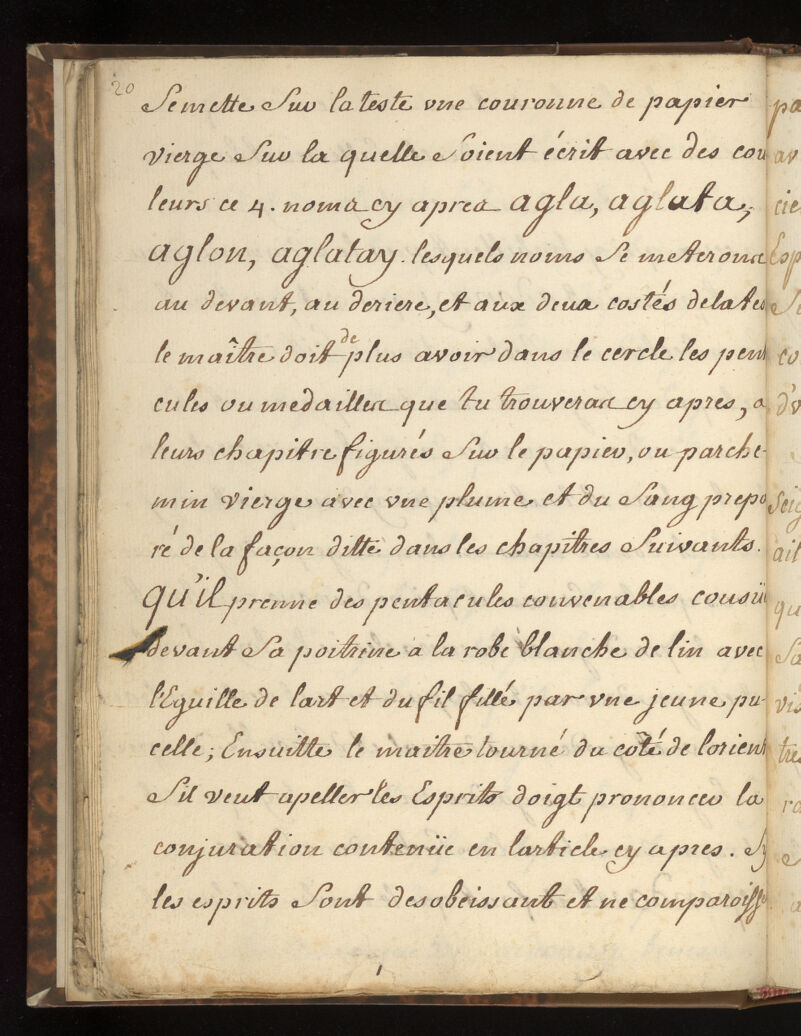 20
Se mette Sur la teste vne couronne de papier
vierge Sur la quelle Soient écrit avec des cou
leurs ce 4. noms cy apres agla, aglata,
aglon, aglatay. lesquels noms Se meterons
au devant, au deriere, et aux deux costés de la tes
le maître doit de plus avoir dans le cercle les pent
cules ou medailles que tu trouveras cy apres, a
leurs chapitre figurés Sur le papier, ou parche-
min vierge avec vne plume et du Sang prepa
ré de la façon ditte dans les chapitres Suivants.
qu'il prenne des pentacules convenables cousüi
devant Sa poitrine a la robe blanche de lin avec
l'Eguille de lart et du fil fillé par vne jeune pu-
celle; Ensuitte le maitre tourné du coté de lorient
S'il veut apeller les Esprits doigt prononcer la
conjuration contenüe en larticle cy apres. Sy
les esprits Sont desobeissant et ne comparoisse
1